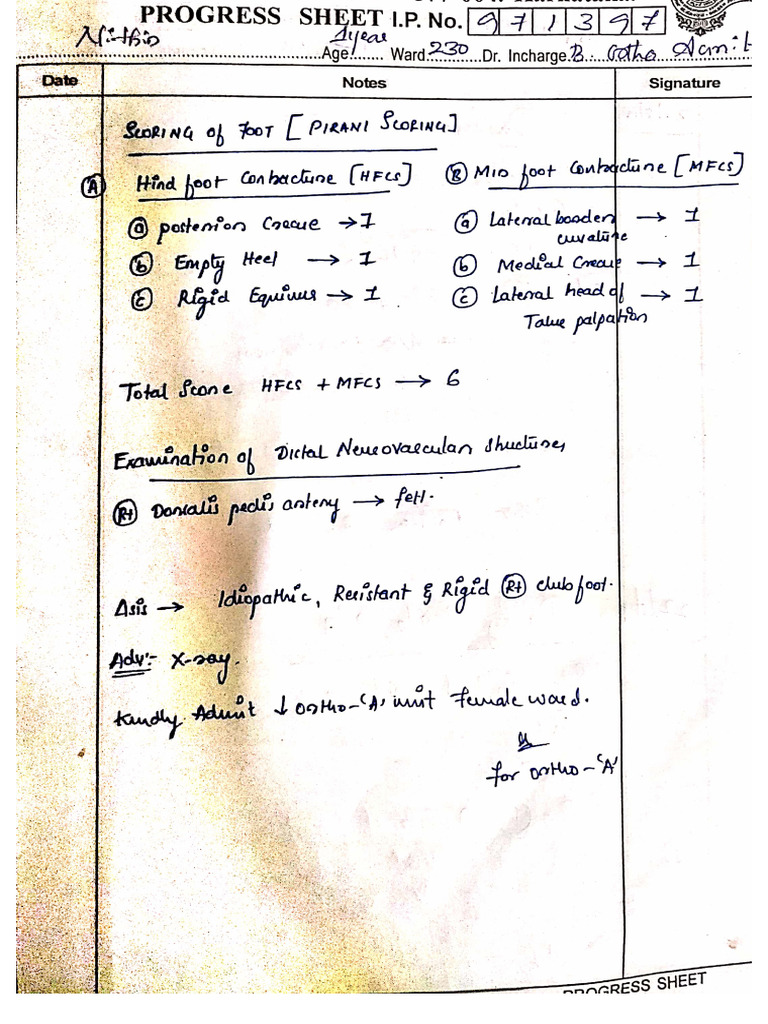 PROGRESS SHEET I.P. No. 971397
Nithin Age 1 year Ward 230 Dr. Incharge B. Ortho A unit
Date Notes Signature
SCORING of FOOT [PIRANI SCORING]
(A) Hind foot Contracture [HFCS]
(a) posterior Crease → 1
(b) Empty Heel → 1
(c) Rigid Equinus → 1
(B) Mid foot Contracture [MFCS]
(a) Lateral boarder → 1
curvature
(b) Medial Crease → 1
(c) Lateral head of → 1
Talus palpation
Total Score HFCS + MFCS → 6
Examination of Distal Neurovascular structures
(Rt) Dorsalis pedis artery → felt.
Δsis → Idiopathic, Resistant & Rigid (Rt) club foot.
Adv:- X-ray.
Kindly Admit ↓ ortho-'A' unit Female ward.
for ortho-'A'
PROGRESS SHEET